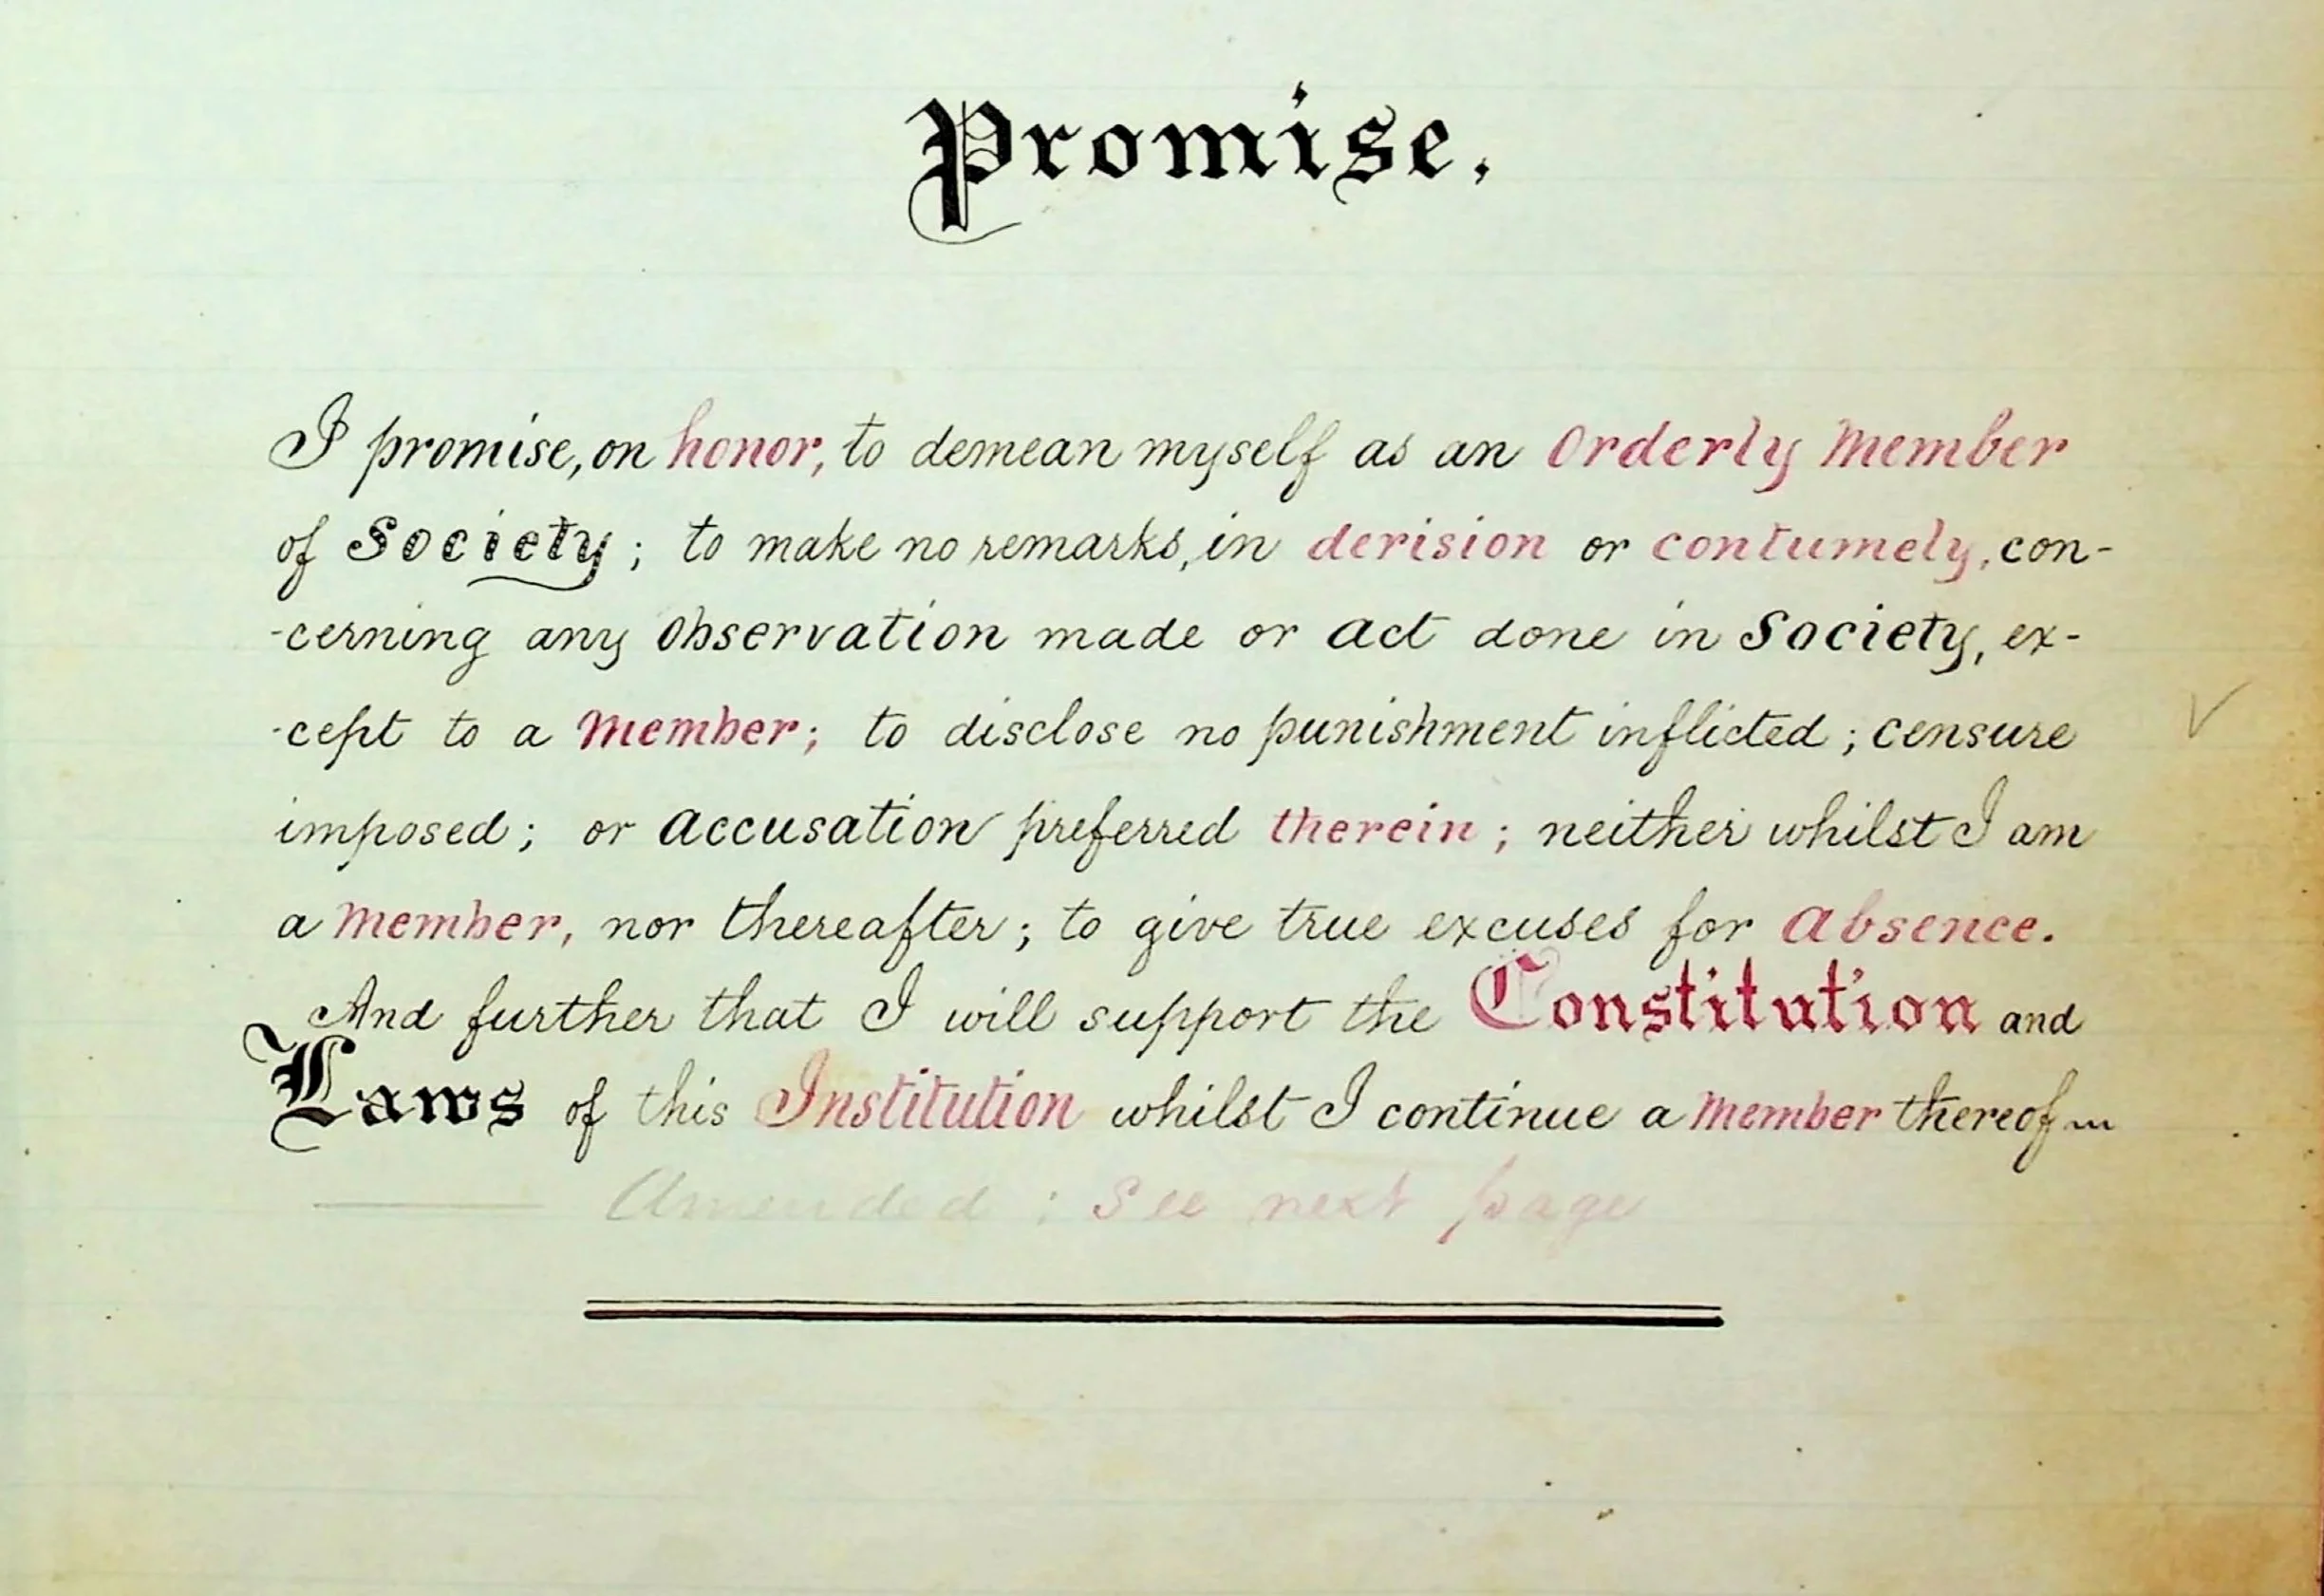 Promise.
I promise, on honor, to demean myself as an Orderly Member
of Society; to make no remarks, in derision or contumely, con-
-cerning any Observation made or act done in Society, ex-
-cept to a Member; to disclose no punishment inflicted; censure
imposed; or accusation preferred therein; neither whilst I am
a Member, nor thereafter; to give true excuses for absence.
And further that I will support the Constitution and
Laws of this Institution whilst I continue a Member thereof
Amended : See next page